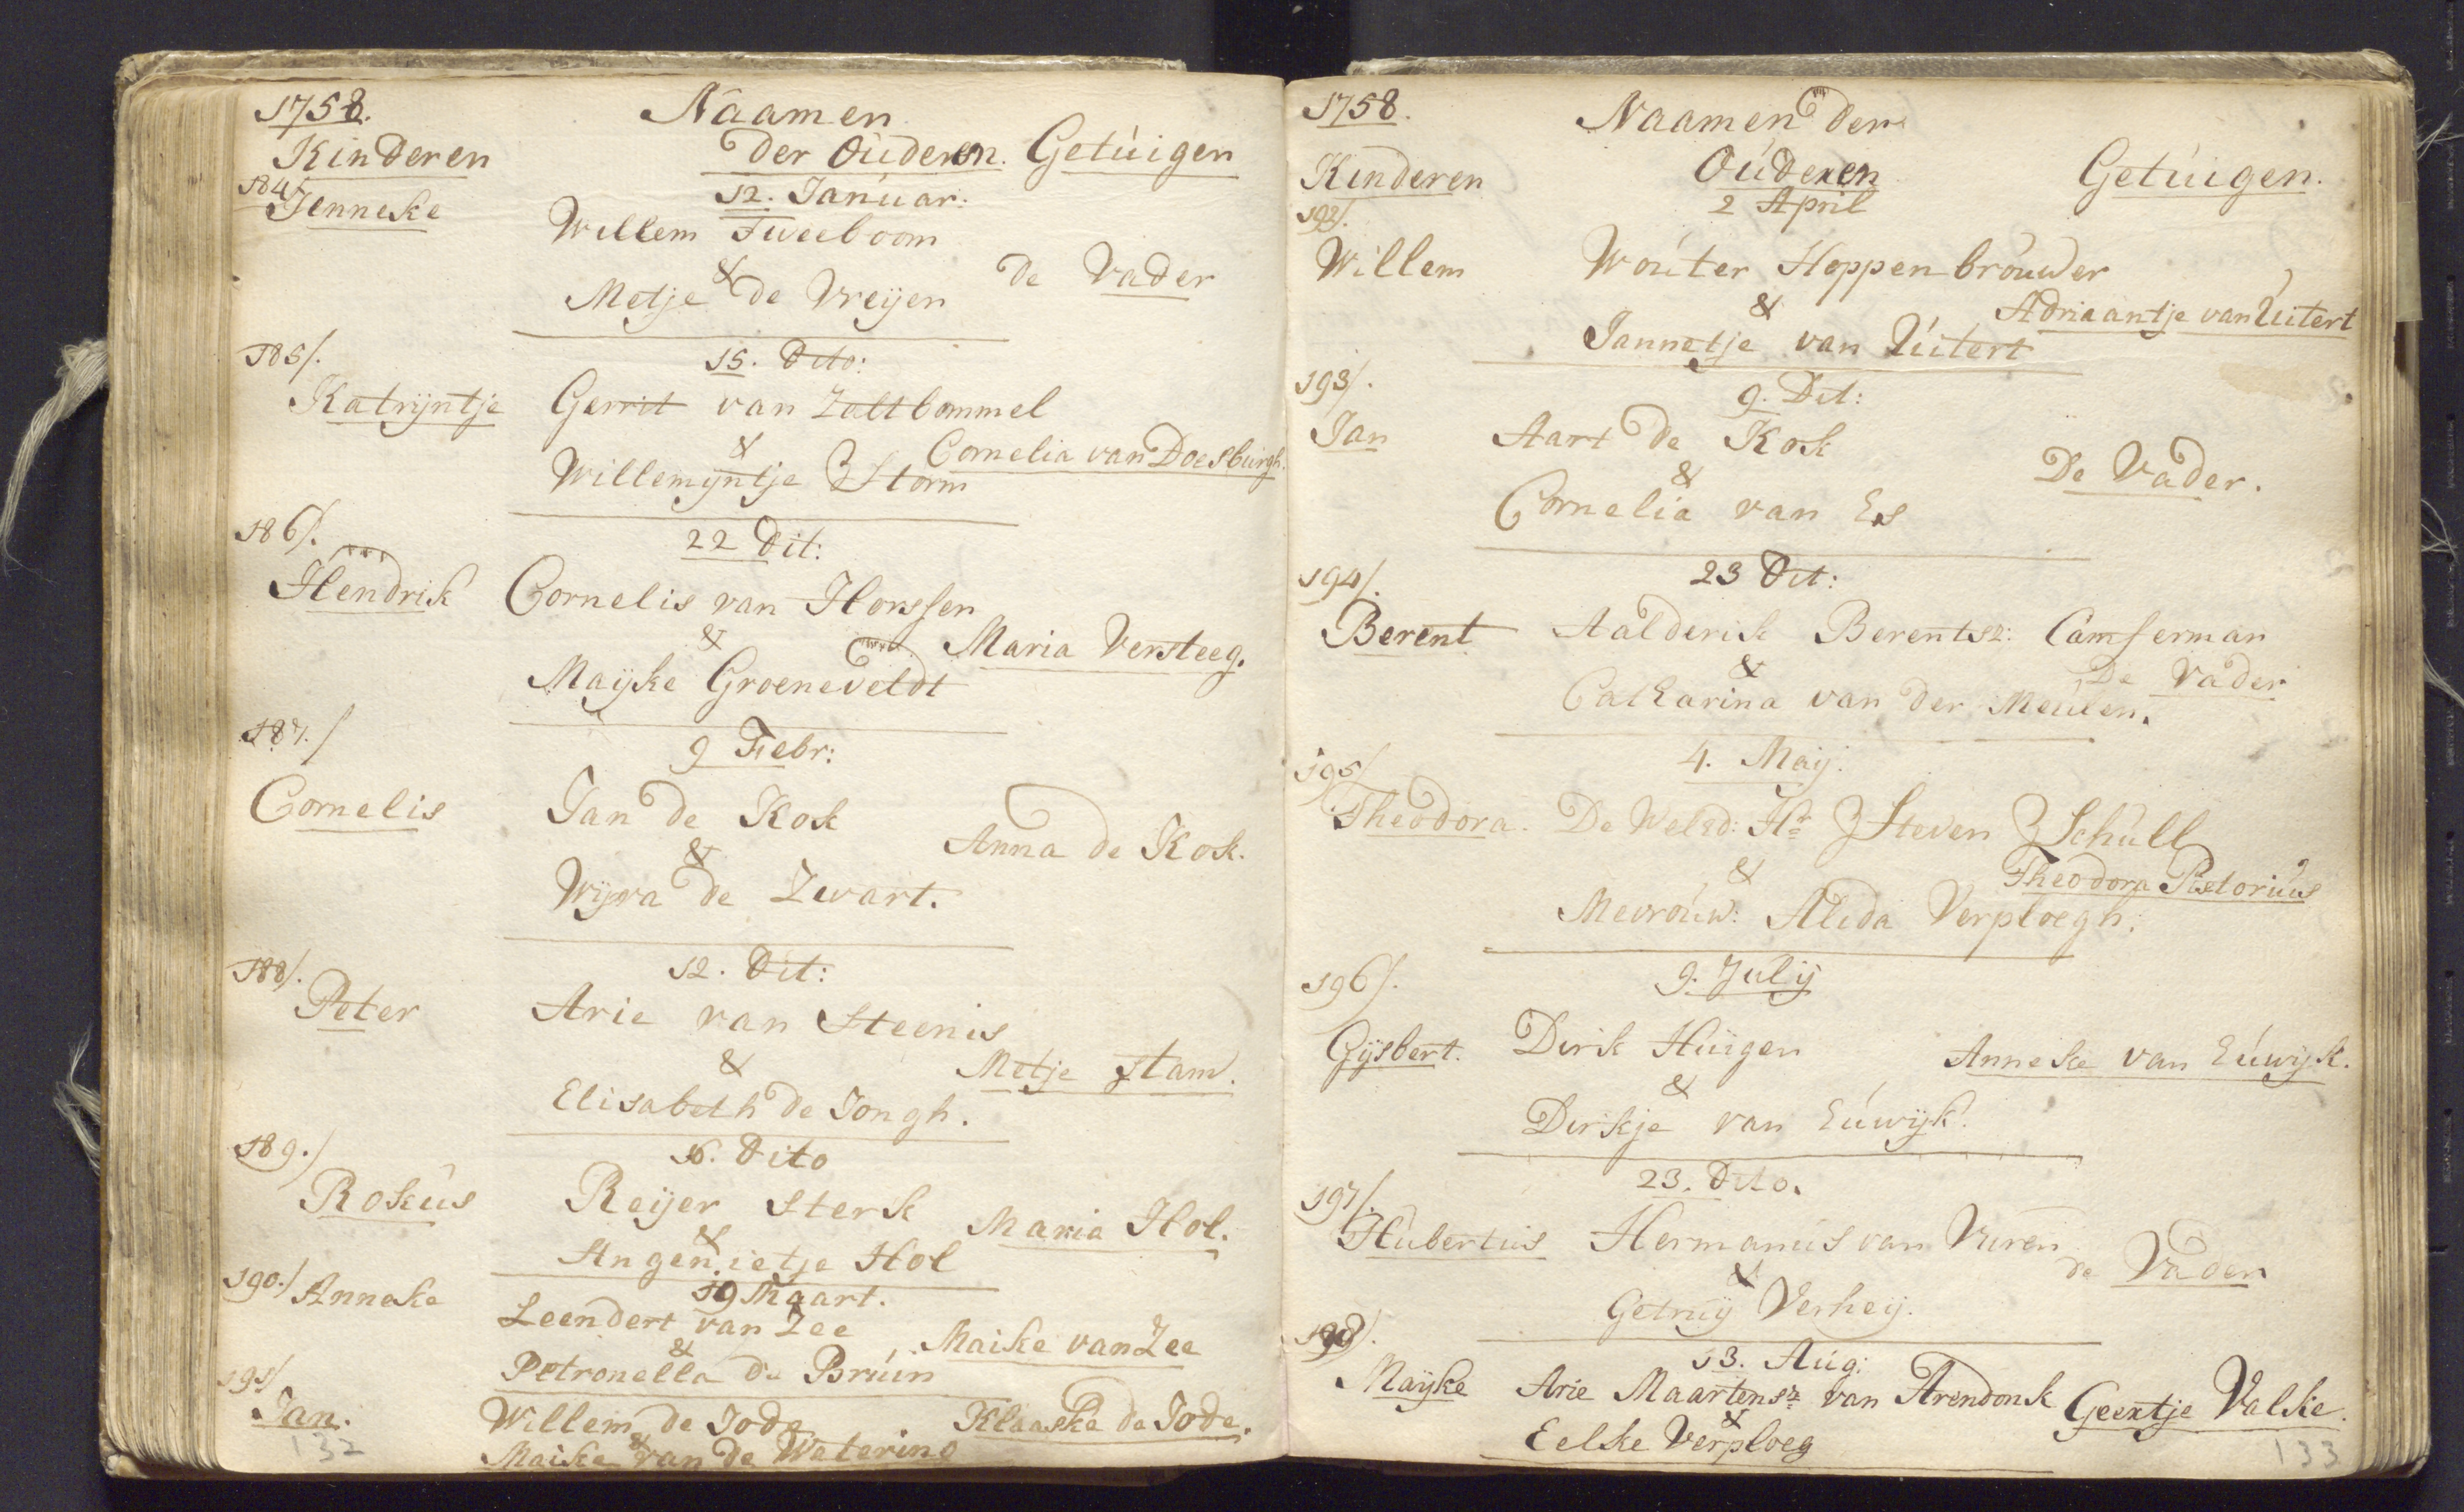 1758.
Naamen
Kinderen der Ouderen. Getuigen
184/. 12. Januar:
Jenneke Willem Tweeboom
& de Vader
Metje de Vreijen
185/. 15. Dito:
Katrijntje Gerrit van Zaltbommel
& Cornelia van Doesburgh.
Willemijntje Storm
186/. 22 Dit:
Hendrik Cornelis van Horssen
& Maria Versteeg.
Maijke Groeneveldt
187./ 9 Febr:
Cornelis Jan de Kok
& Anna de Kok.
Wijva de Zwart.
188/. 12. Dit:
Peter Arie van Steenis
& Metje Stam.
Elisabeth de Jongh.
189./ 16. Dito
Rokus Reijer Sterk
& Maria Hol.
Angenietje Hol
190./ 19 Maart.
Anneke Leendert van Zee
& Maike van Zee
Petronella de Bruin
191/
Jan. Willem de Jode Klaaske de Jode.
&
Maike van de Watering
132
1758.
Naamen der
Kinderen Ouderen Getuigen.
192/. 2 April
Willem Wouter Hoppenbrouwer
& Adriaantje van Uitert
Jannetje van Uitert
193/. 9. Dit:
Jan Aart de Kok
& De Vader.
Cornelia van Es
194/. 23 Dit:
Berent Aalderik Berentsz: Camferman
& De Vader
Catharina van der Meulen.
195/ 4. Maij.
Theodora. De Weled: Hr Steven Schull
& Theodora Pistorius
Mevrouw: Alida Verploegh.
196/. 9. Julij
Gijsbert. Dirk Huigen Anneke van Euwijk.
&
Dirkje van Euwijk.
197/. 23. Dito.
Hubertus Hermanus van Vuren
& de Vader
Getruij Verheij.
198/. 13. Aug:
Maijke Arie Maartensz van Arendonk Geertje Valke.
&
Eelke Verploeg
133